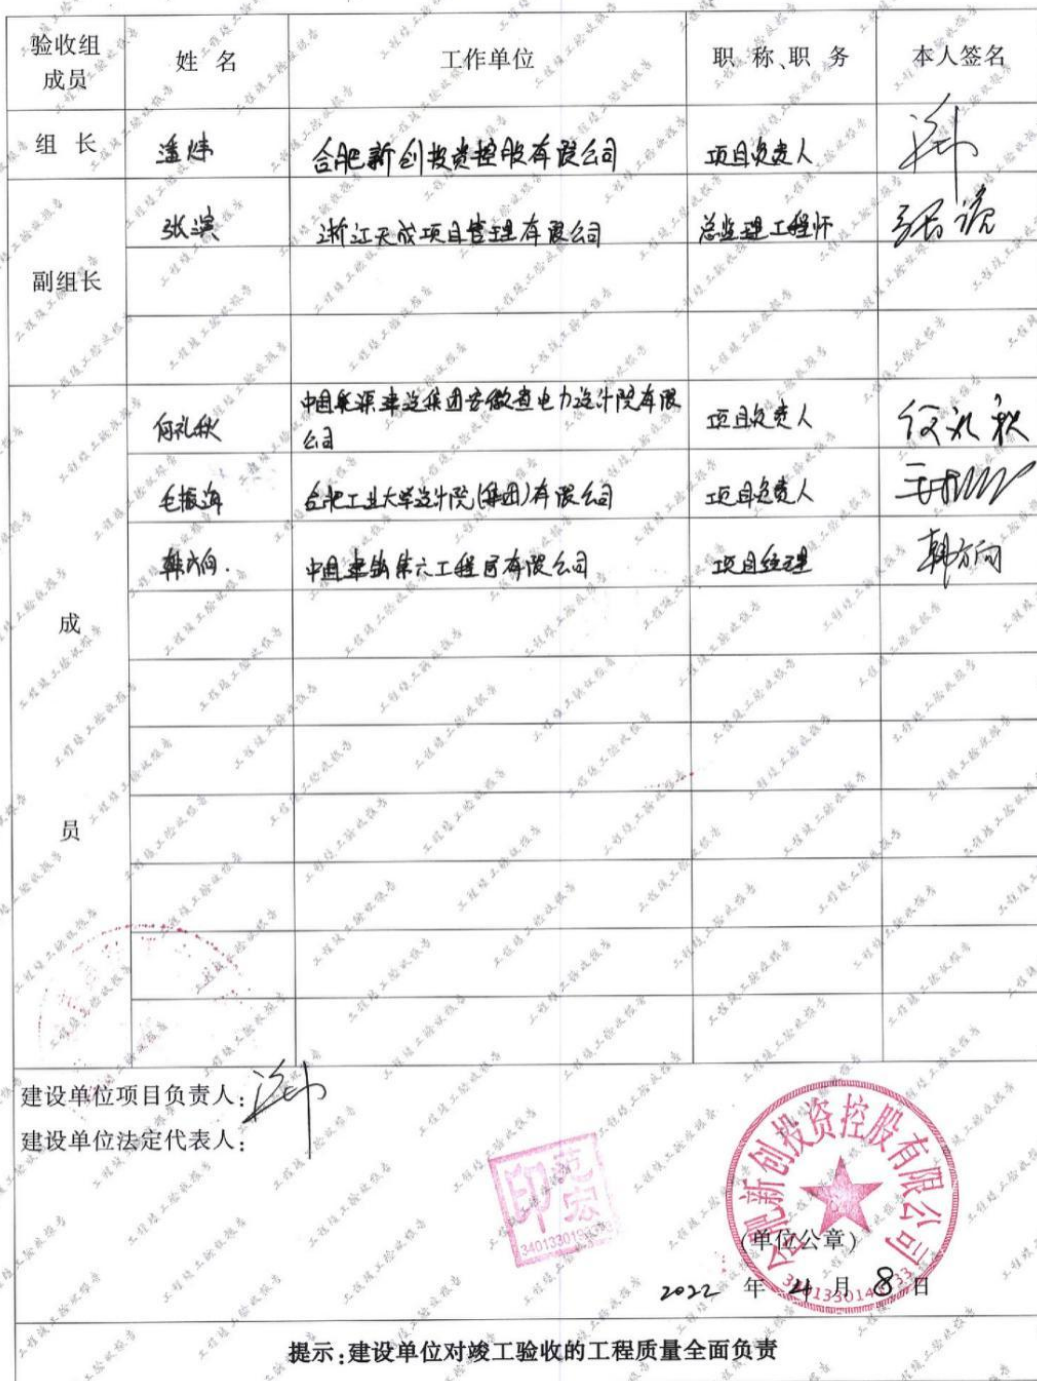 验收组成员 姓名 工作单位 职称、职务 本人签名
组长 潘炜 合肥新创投资控股有限公司 项目负责人
副组长 张滨 浙江天成项目管理有限公司 总监理工程师
成员
何礼秋 中国能源建设集团安徽省电力设计院有限公司 项目负责人 何礼秋
毛振海 合肥工业大学设计院(集团)有限公司 项目负责人
韩方向. 中国建筑第六工程局有限公司 项目经理 韩方向
建设单位项目负责人:
建设单位法定代表人:
合肥新创投资控股有限公司
(单位公章)
2022 年 月 8 日
提示:建设单位对竣工验收的工程质量全面负责
工程竣工验收报告